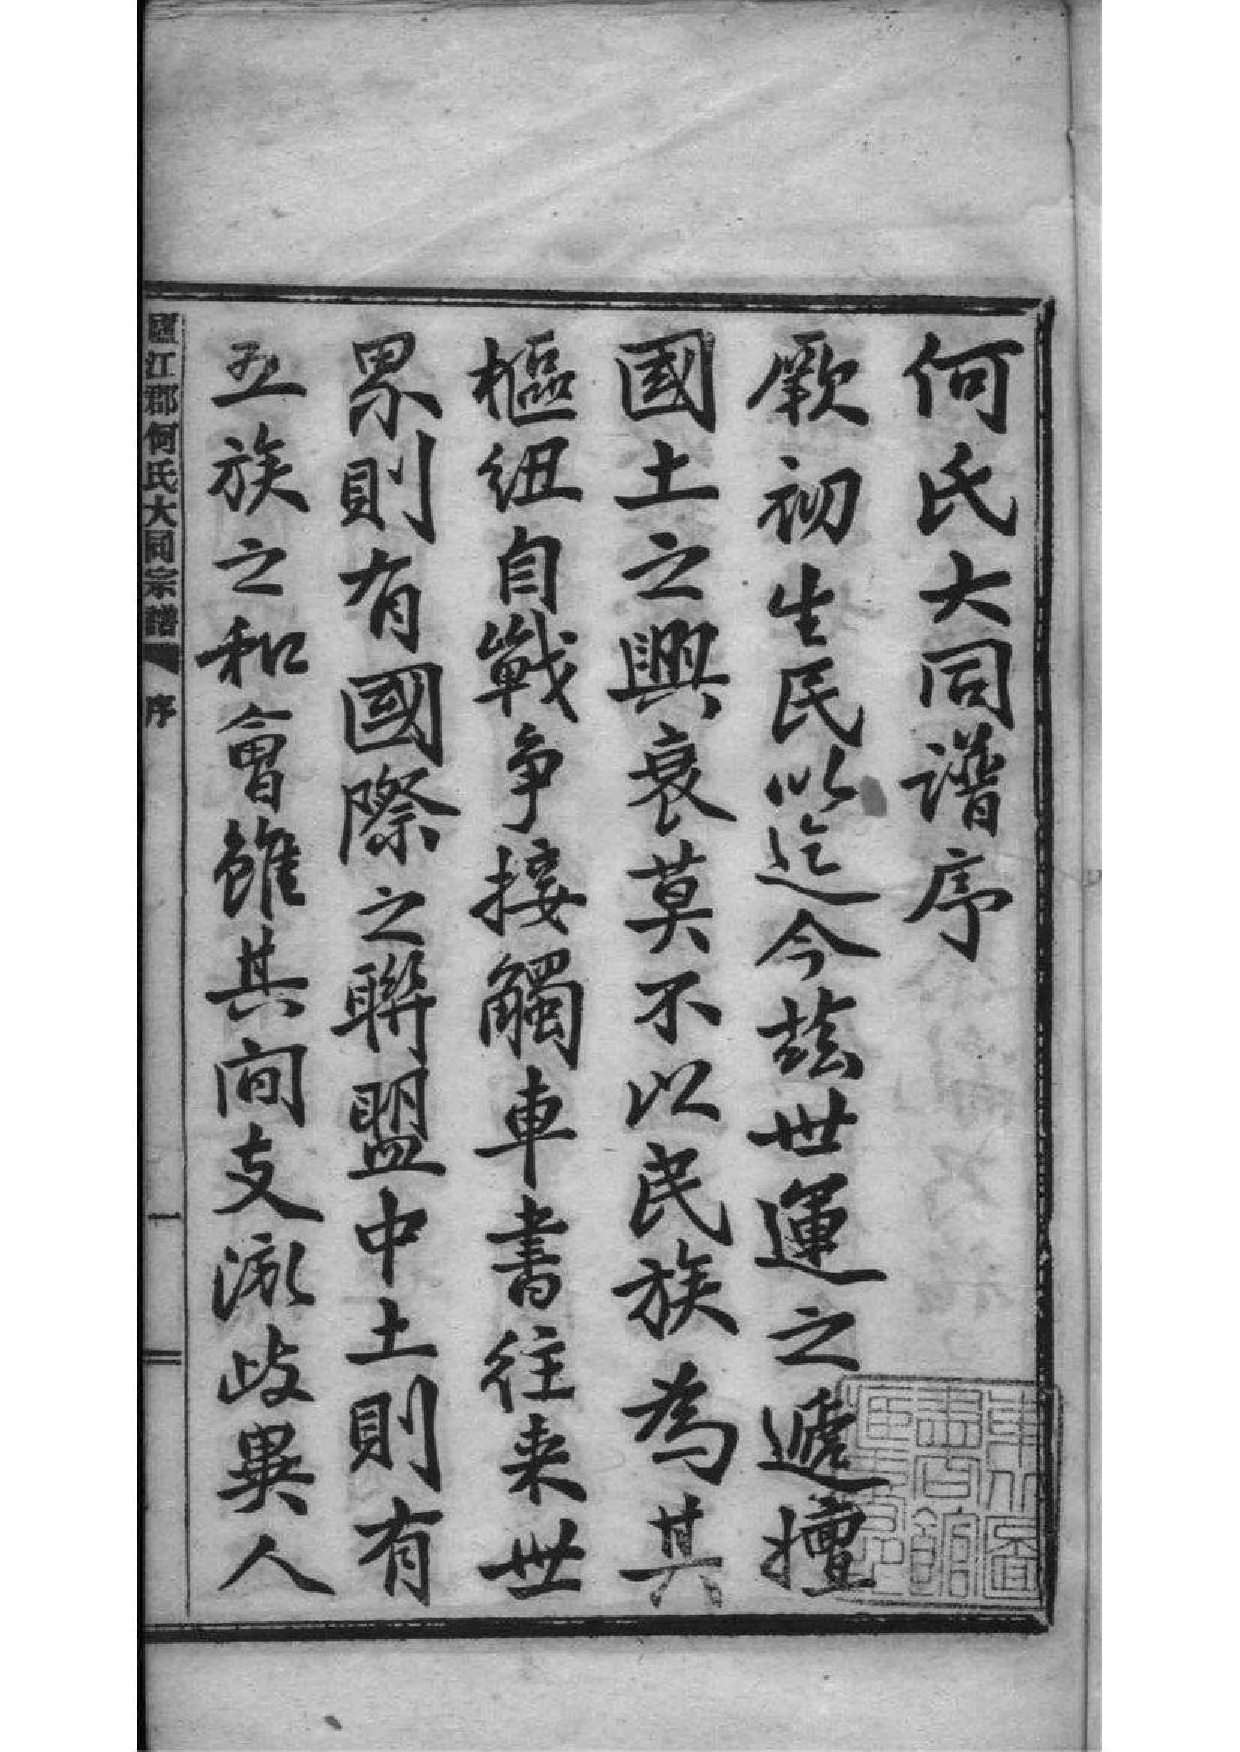 何氏大同譜序
厥初生民以迄今茲世運之遞擅
國土之興衰莫不以民族為其
樞紐自戰爭接觸車書往来世
界則有國際之聯盟中土則有
五族之和會雖其間支派歧異人
廬江郡何氏大同宗譜 序 一